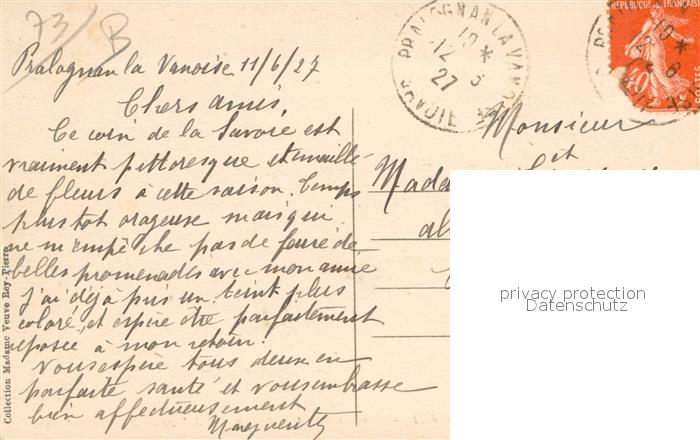 73/B
Pralognan la Vanoise 11/6/27
Chers amis,
Ce coin de la Savoie est
vraiment pittoresque et émaillé
de fleurs à cette saison. Temps
plustot orageuse mais qui
ne m'empêche pas de faire de
belles promenades avec mon amie
J'ai déjà pris un teint plus
coloré, et espère être parfaitement
reposée à mon retour.
Vous espère tous deux en
parfaite santé et vous embrasse
bien affectueusement
Marguerite
Monsieur
et
Mada
al
Collection Madame Veuve Rey-Pierre
PRALOGNAN LA VANOISE
10 *
12 - 6
27
SAVOIE
REPUBLIQUE FRANÇAISE
40
POSTES
10 *
12 6
privacy protection
Datenschutz